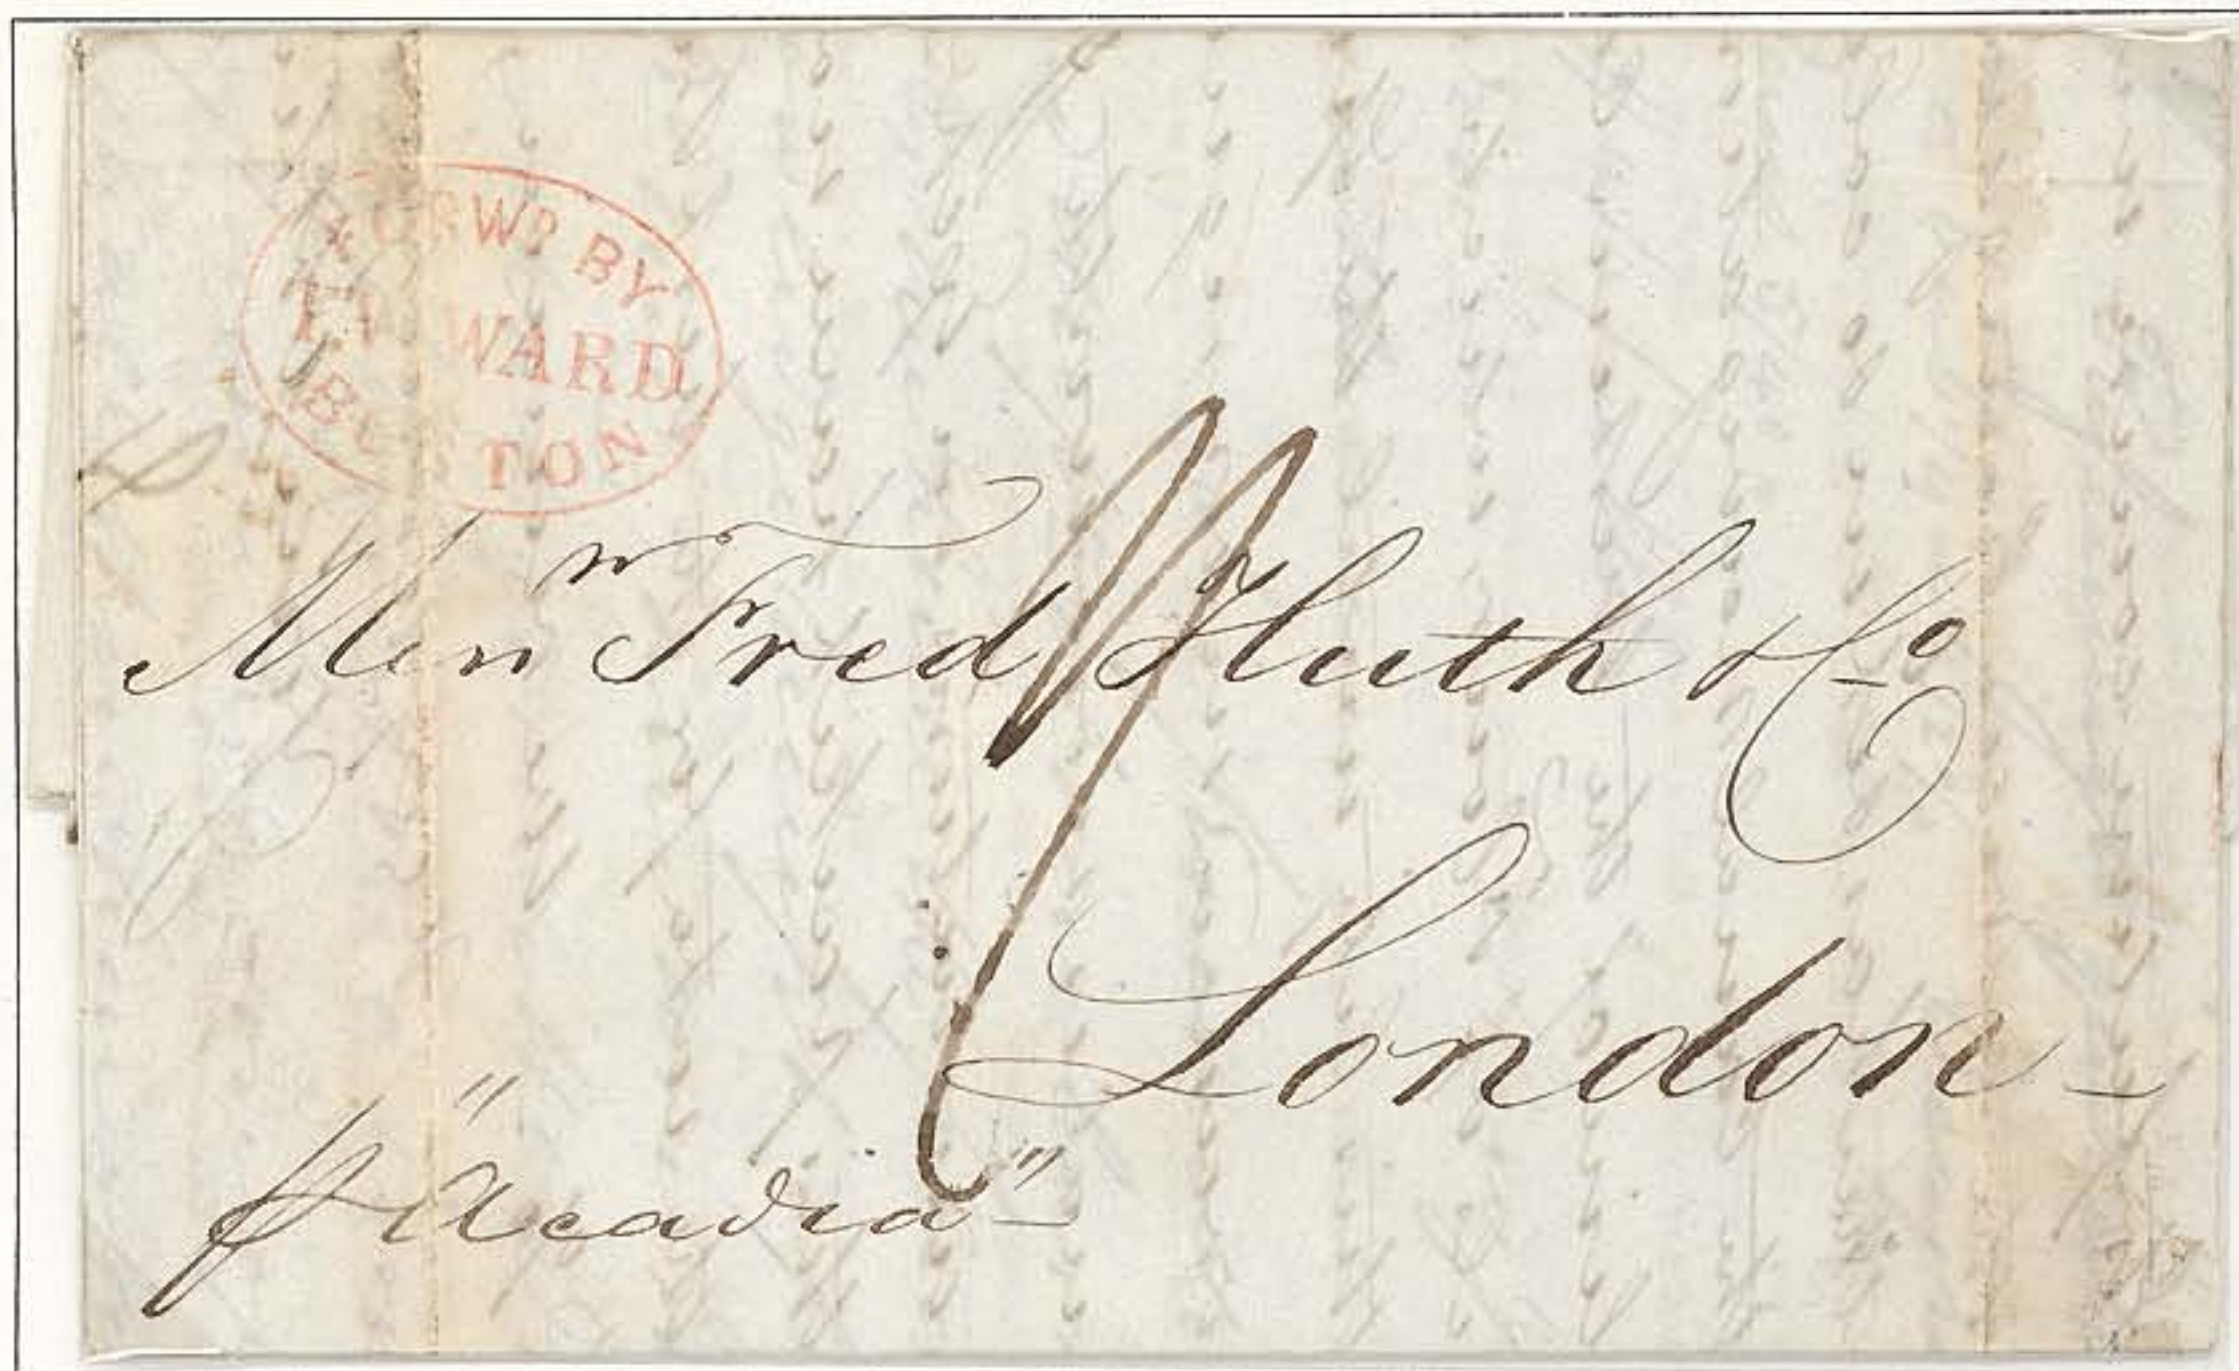 FORWD BY
T.W. WARD
BOSTON
Messrs Fred Huth & Co
London
p "Acadia"